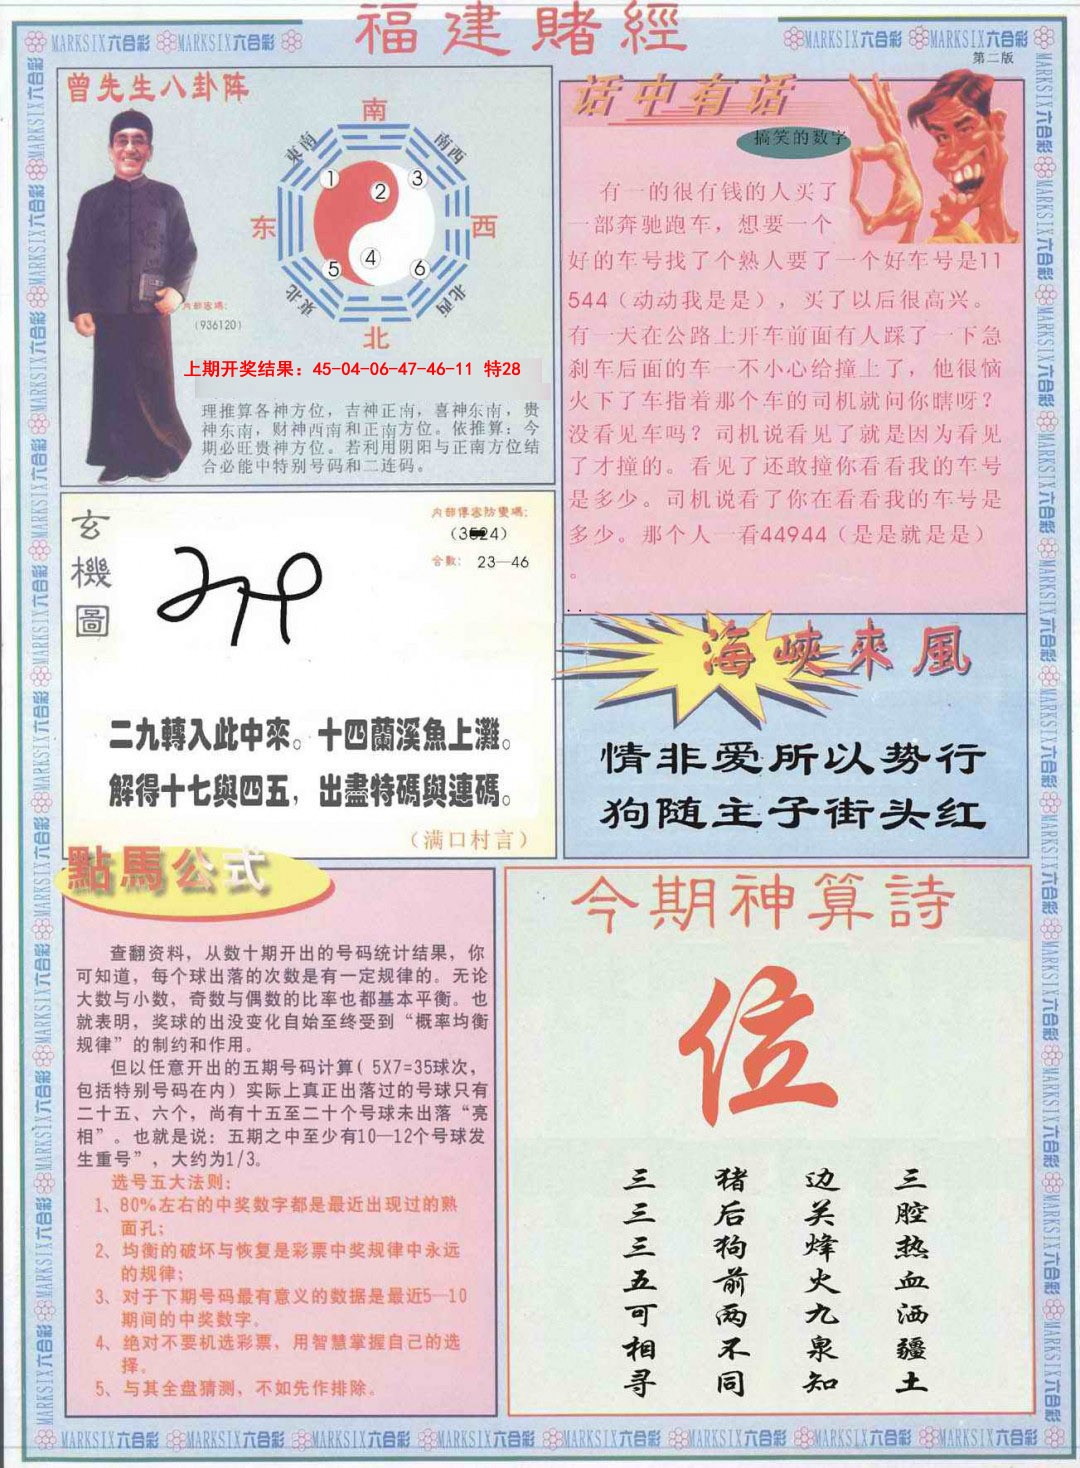 福建賭經
MARKSIX六合彩 MARKSIX六合彩 MARKSIX六合彩 MARKSIX六合彩
第二版
曾先生八卦阵
南
東南
南西
①
②
③
东
西
④
⑤
⑥
東北
北西
北
内部密碼:
(936120)
上期开奖结果：45-04-06-47-46-11 特28
理推算各神方位，吉神正南，喜神东南，贵
神东南，财神西南和正南方位。依推算：今
期必旺贵神方位。若利用阴阳与正南方位结
合必能中特别号码和二连码。
话中有话
搞笑的数字
有一的很有钱的人买了
一部奔驰跑车，想要一个
好的车号找了个熟人要了一个好车号是11
544（动动我是是），买了以后很高兴。
有一天在公路上开车前面有人踩了一下急
刹车后面的车一不小心给撞上了，他很恼
火下了车指着那个车的司机就问你瞎呀？
没看见车吗？司机说看见了就是因为看见
了才撞的。看见了还敢撞你看看我的车号
是多少。司机说看了你在看看我的车号是
多少。那个人一看44944（是是就是是）
。
玄機圖
内部傳密防變碼:
合數: 23—46
二九轉入此中來。十四蘭溪魚上灘。
解得十七與四五，出盡特碼與連碼。
（满口村言）
海峽來風
情非爱所以势行
狗随主子街头红
點馬公式
查翻资料，从数十期开出的号码统计结果，你
可知道，每个球出落的次数是有一定规律的。无论
大数与小数，奇数与偶数的比率也都基本平衡。也
就表明，奖球的出没变化自始至终受到“概率均衡
规律”的制约和作用。
但以任意开出的五期号码计算( 5X7=35球次，
包括特别号码在内）实际上真正出落过的号球只有
二十五、六个，尚有十五至二十个号球未出落“亮
相”。也就是说：五期之中至少有10—12个号球发
生重号”，大约为1/3。
选号五大法则:
1、80%左右的中奖数字都是最近出现过的熟
面孔;
2、均衡的破坏与恢复是彩票中奖规律中永远
的规律;
3、对于下期号码最有意义的数据是最近5—10
期间的中奖数字。
4、绝对不要机选彩票，用智慧掌握自己的选
择。
5、与其全盘猜测，不如先作排除。
今期神算詩
位
三腔热血洒疆土
边关烽火九泉知
猪后狗前两不同
三三三五可相寻